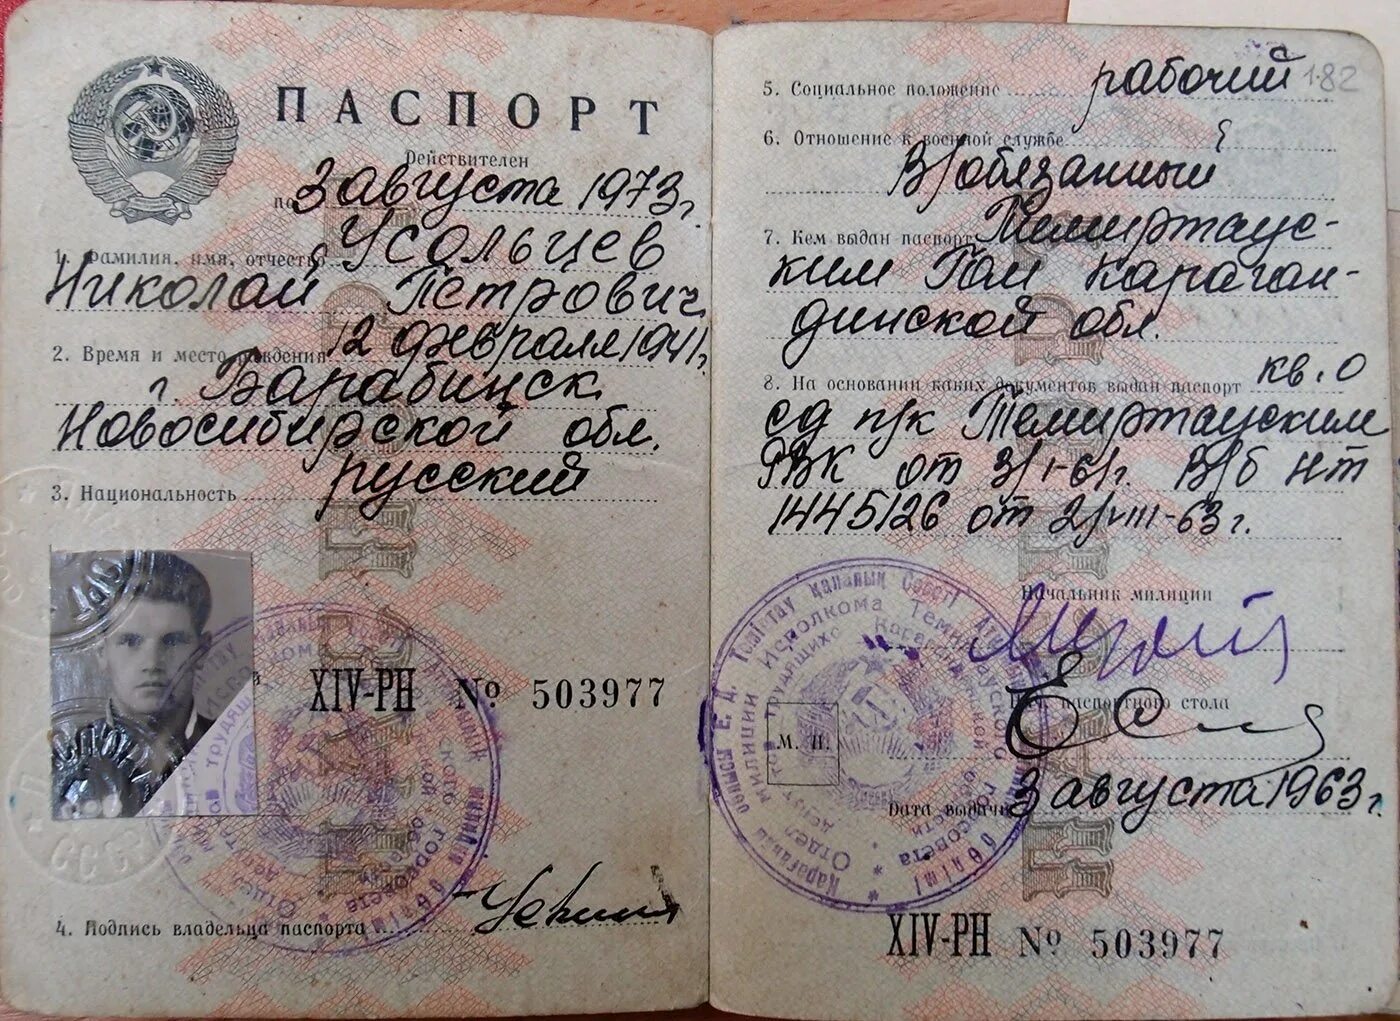 ПАСПОРТ
Действителен
по 3 августа 1973 г.
1. Фамилия, имя, отчество Усольцев
Николай Петрович
2. Время и место рождения 12 февраля 1941 г.
г. Барабинск
Новосибирской обл.
3. Национальность русский
XIV-РН № 503977
4. Подпись владельца паспорта
5. Социальное положение рабочий 182
6. Отношение к военной службе
В/обязанный
7. Кем выдан паспорт Темиртаус-
ким Караган-
динской обл.
8. На основании каких документов выдан паспорт
Темиртауским
от 3/I-61г. В/б НТ
1445126 от 2/VIII-63 г.
Начальник милиции
Нач. паспортного стола
М. П.
Дата выдачи 3 августа 1963 г.
XIV-РН № 503977
СССР